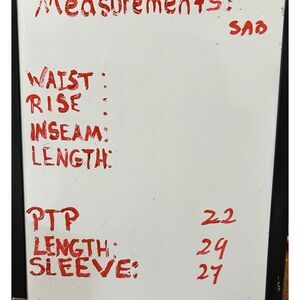 Measurements:
SAB
WAIST:
RISE :
INSEAM:
LENGTH:
PTP 22
LENGTH: 29
SLEEVE: 27